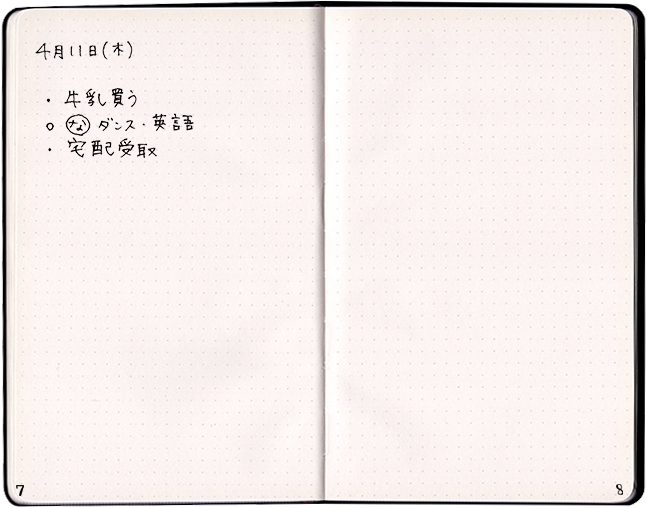 4月11日(木)
・牛乳買う
○ な ダンス・英語
・宅配受取
7
8